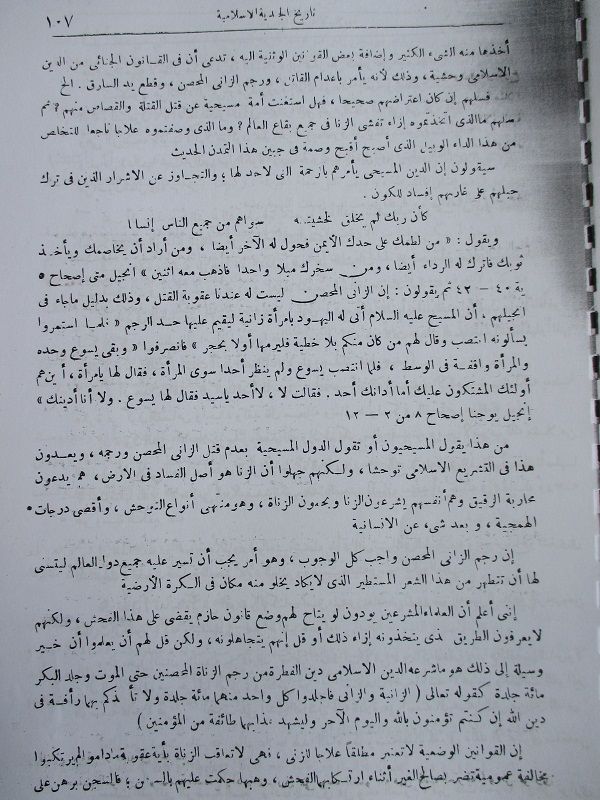 تاريخ الجندية الاسلامية
١٠٧
أخذها منه الشىء الكثير وإضافة بعض القوانين الوثنية اليه ، تدعى أن فى القسانون الجنائى من الدين
الاسلامى وحشية ، وذلك لأنه يأمر باعدام القاتل ، ورجم الزانى المحصن ، وقطع يد السارق . الخ
فسلهم إن كان اعتراضهم صحيحا ، فهل استغنت أمة مسيحية عن قتل القتلة والقصاص منهم ؟ ثم
سلهم ماالذى اتخذتموه إزاء تفشى الزنا فى جميع بقاع العالم ؟ وما الذى وصفتموه علاجا ناجعا للتخلص
من هذا الداء الوبيل الذى أصبح أقبح وصمة فى جبين هذا التمدن الحديث
سيقولون إن الدين المسيحى يأمرهم بالرحمة التى لاحد لها ؛ والتجاوز عن الاشرار الذين فى ترك
حبلهم على غاربهم إفساد للكون .
كأن ربك لم يخلق لخشيته سواهم من جميع الناس إنسانا
ويقول : « من لطمك على خدك الأيمن فحول له الآخر أيضا ، ومن أراد أن يخاصمك ويأخذ
ثوبك فاترك له الرداء أيضا ، ومن سخرك ميلا واحدا فاذهب معه اثنين » انجيل متى إصحاح ٥
ية ٤٠ — ٤٢ ثم يقولون : إن الزانى المحصن ليست له عندنا عقوبة القتل ، وذلك بدليل ماجاء فى
انجيلهم . أن المسيح عليه السلام أتى له اليهود بامرأة زانية ليقيم عليها حد الرجم « فلما استمروا
يسألونه انتصب وقال لهم من كان منكم بلا خطية فليرمها أولا بحجر » فانصرفوا « وبقى يسوع وحده
والمرأة واقفة فى الوسط ، فلما انتصب يسوع ولم ينظر أحدا سوى المرأة ، فقال لها يامرأة ، أين هم
أولئك المشتكون عليك أما أدانك أحد . فقالت لا ، لاأحد ياسيد فقال لها يسوع . ولا أنا أدينك »
إنجيل يوحنا إصحاح ٨ من ٣ — ١٢
من هذا يقول المسيحيون أو تقول الدول المسيحية بعدم قتل الزانى المحصن ورجمه ، ويعدون
هذا فى التشريع الاسلامى توحشا ، ولكنهم جهلوا أن الزنا هو أصل الفساد فى الارض ، هم يدعون
محاربة الرقيق وهم أنفسهم يشرعون الزنا ويحمون الزناة ، وهو منتهى أنواع التوحش ، وأقصى درجات
الهمجية ، و بعد شىء عن الانسانية
إن رجم الزانى المحصن واجب كل الوجوب ، وهو أمر يجب أن تسير عليه جميع دول العالم ليتسنى
لها أن تتطهر من هذا الشعر المستطير الذى لايكاد يخلو منه مكان فى الكرة الأرضية
إنى أعلم أن العلماء المشرعين يودون لو يتاح لهم وضع قانون حازم يقضى على هذا الفحش ، ولكنهم
لايعرفون الطريق لذى يتخذونه إزاء ذلك أو قل إنهم يتجاهلونه ، ولكن قل لهم أن يعلموا أن خير
وسيلة إلى ذلك هو ماشرعه الدين الاسلامى دين الفطرة من رجم الزناة المحصنين حتى الموت وجلد البكر
مائة جلدة كقوله تعالى ( الزانية والزانى فاجلدوا كل واحد منهما مائة جلدة ولا تأخذكم بهما رأفة فى
دين الله إن كنتم تؤمنون بالله واليوم الآخر وليشهد عذابهما طائفة من المؤمنين )
إن القوانين الوضعية لاتعتبر مطلقا علاجا للزنى ، فهى لاتعاقب الزناة بأية عقوبة مادامو لم يرتكبوا
مخالفة عمومية تضر بصالح الغير أثناء ارتكابهم الفحش ، وهبها حكمت عليهم بالسجن ؛ فالسجن برهن على